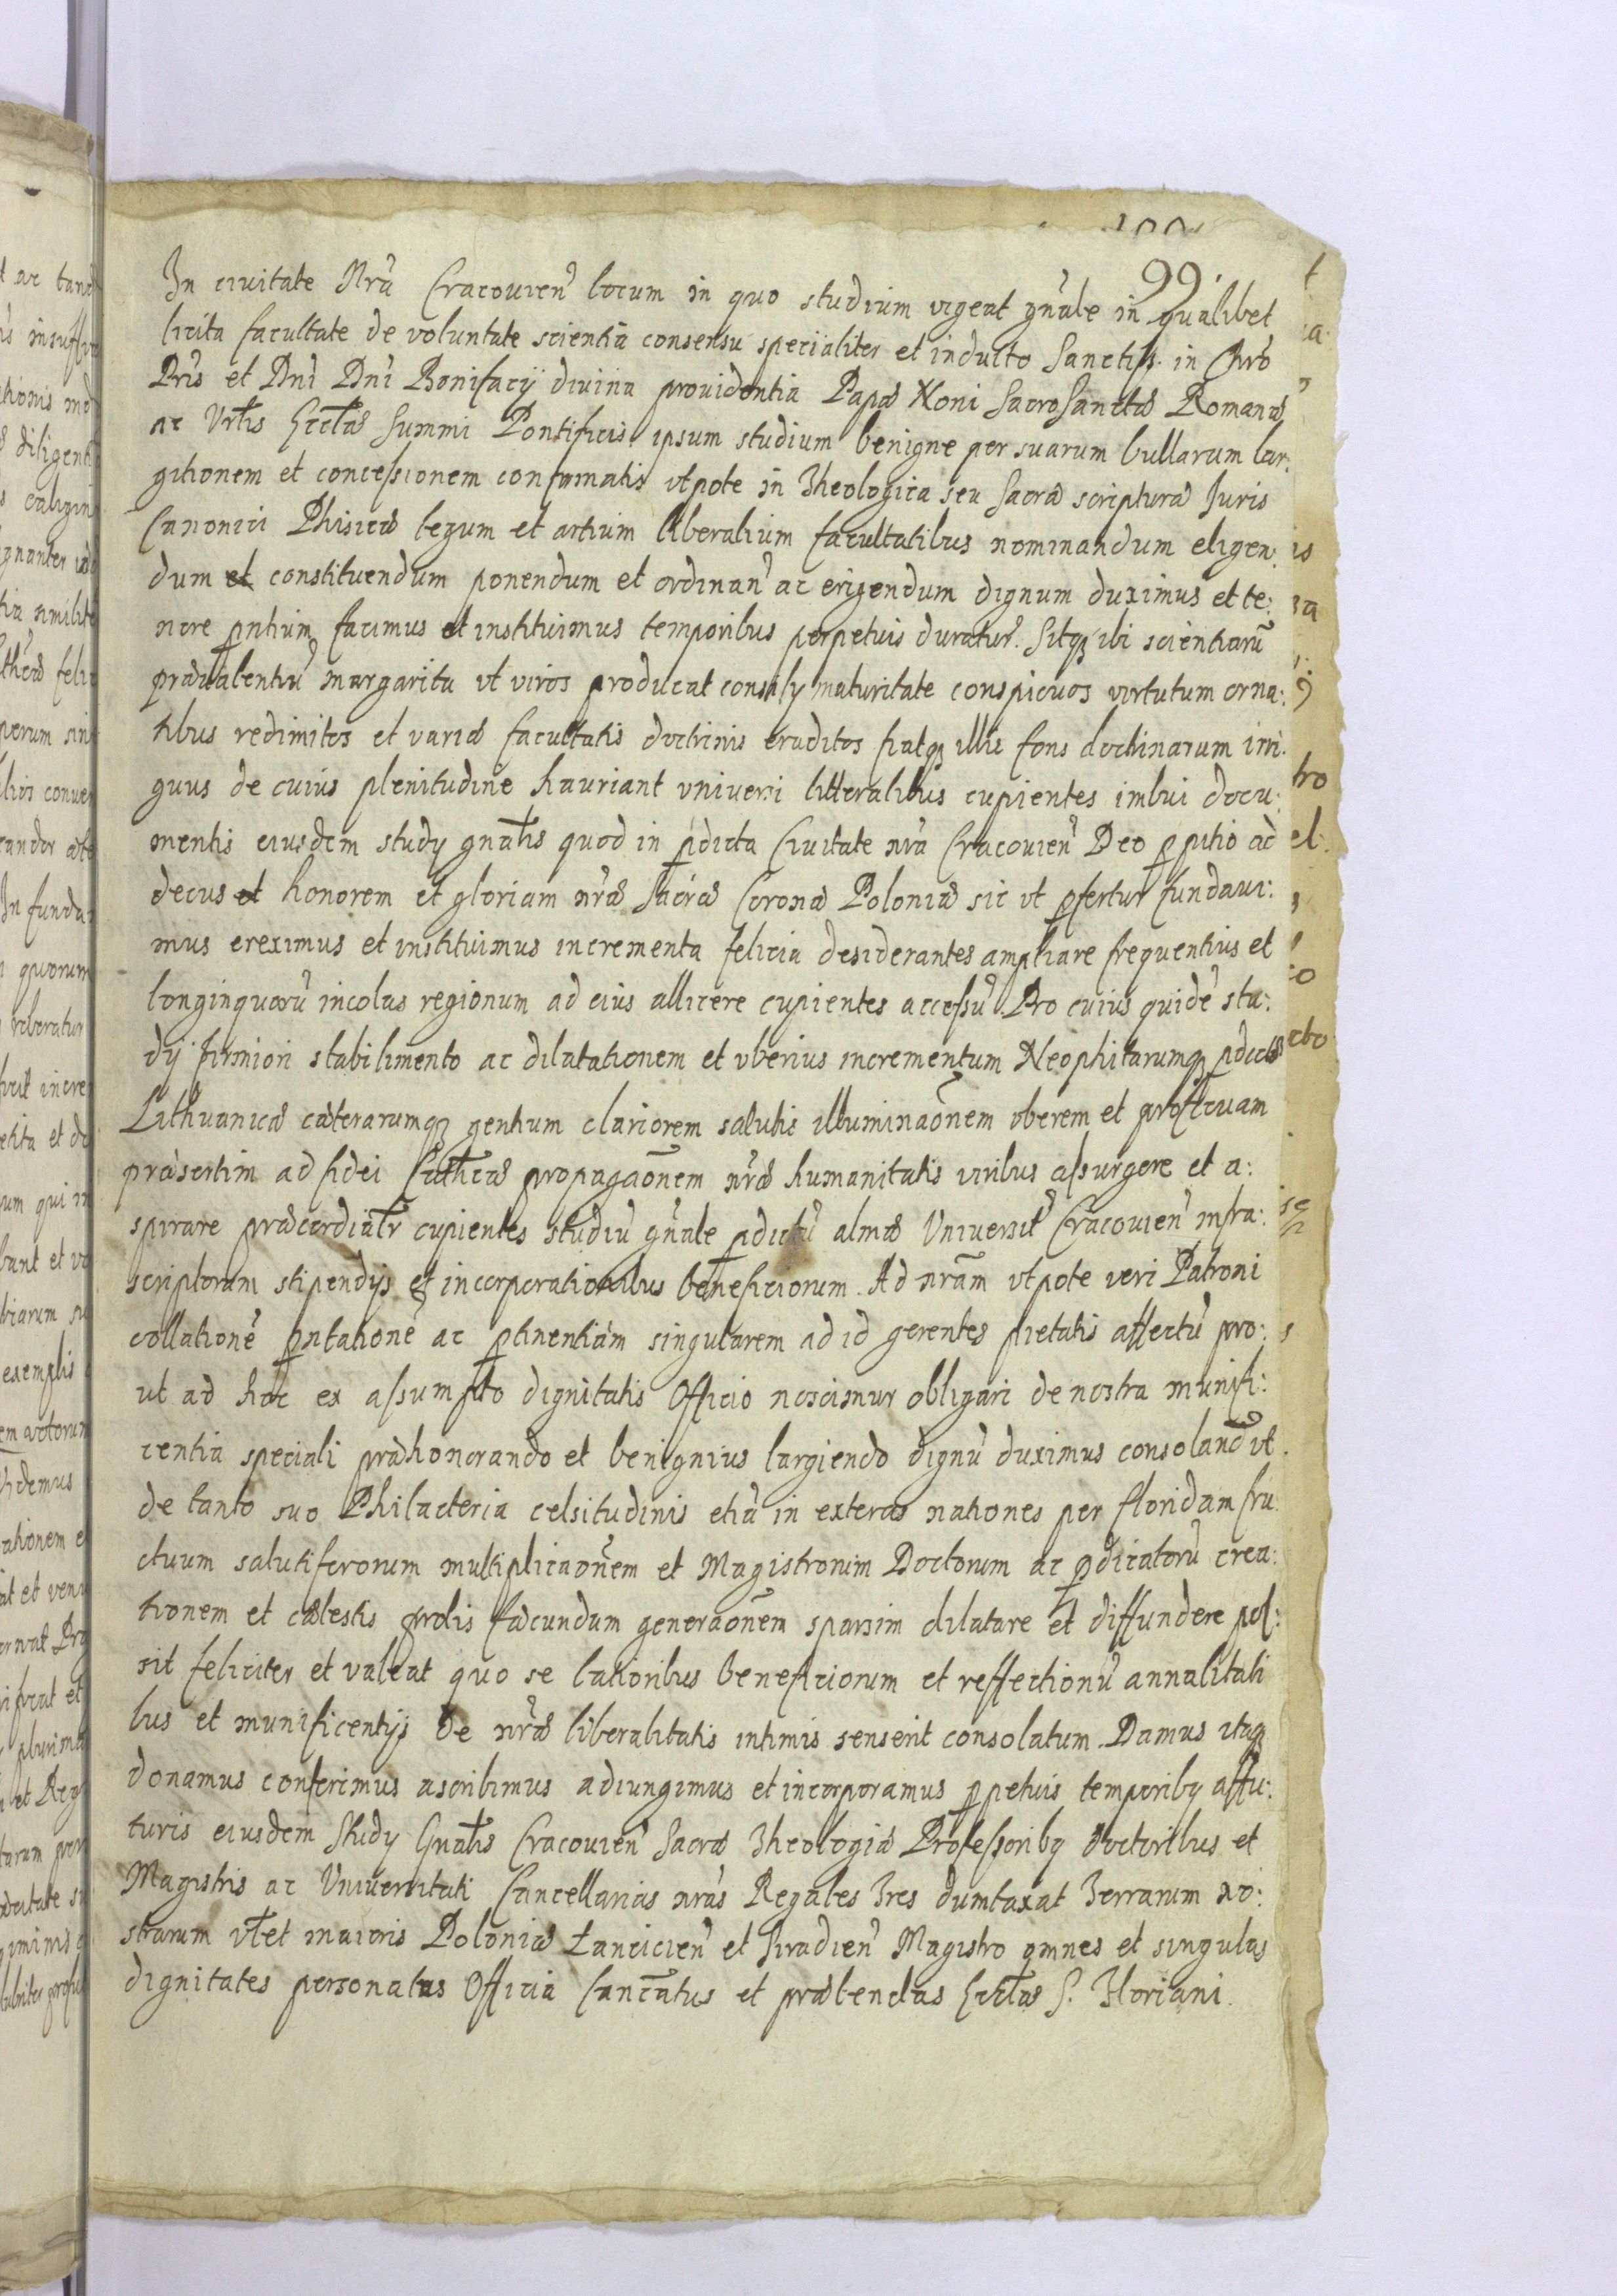 99.
In ciuitate Nrã Cracouien̉ locum in quo studium vigeat gñale in qualibet
licita facultate de voluntate scientia consensu specialiter et indulto Sanctiss. in Chrõ
Pris et Dni Dni Bonifacÿ diuina prouidentia Papæ Noni SacroSanctæ Romanæ
ac Vrtis Ecctæ Summi Pontificis ipsum studium benigne per suarum bullarum lar:
gitionem et concessionem confirmatis vtpote in Theologica seu Sacræ scripturæ Juris
Canonici Phisicæ legum et artium liberalium facultatibus nominandum eligen:
dum et constituendum ponendum et ordinan̉ ac erigendum dignum duximus et te:
nore pntium facimus et instituimus temporibus perpetuis duratur̉. Sitq ibi scientiarũ
præualentiũ margarita vt viros producat consilÿ maturitate conspicuos virtutum orna:
tibus redimitos et variæ facultatis doctrinis eruditos fiatq illic fons doctrinarum irri:
guus de cuius plenitudine hauriant vniuersi litteralibus cupientes imbui docu:
mentis eiusdem studÿ gnatis quod in pdicta Ciuitate nrã Cracouien̉ Deo ppitio ad
decus et honorem et gloriam nræ Sacræ Coronæ Poloniæ sic vt pfertur fundaui:
mus ereximus et instituimus incrementa felicia desiderantes ampliare frequentius et
longinquorũ incolas regionum ad eius allicere cupientes accessũ. Pro cuius quidẽ stu:
dÿ firmiori stabilimento ac dilatationem et vberius incrementum Neophitarumq pdictæ
Lithuanicæ cæterarumq gentium clariorem salutis illuminaõnem vberem et profícuam
præsertim ad fidei Cathcæ propagaõnem nræ humanitatis viribus assurgere et a:
spirare præcordiatr cupientes studiũ gñale pdictũ almæ Vniuersit̉ Cracouien̉ infra:
scriptorum stipendÿs et incorporationibus beneficiorum. Ad nrãm vtpote veri Patroni
collationẽ pntationẽ ac ptinentiam singularem ad id gerentes pietatis affectũ pro:
ut ad hoc ex assumpto dignitatis Officio noscimur obligari de nostra munifi:
centia speciali præhonorando et benignius largiendo dignũ duximus consoland̃ vt
de tanto suo Philacteria celsitudinis etiã in exteras nationes per floridam fru
ctuum salutiferorum multiplicaõnem et Magistrorum Doctorum ac pdicatorũ crea:
tionem et cælestis prolis fæcundam generaõnem sparsim dilatare et diffundere pos:
sit feliciter et valeat quo se latioribus beneficiorum et reffectionũ annalitati
bus et munificentÿs de nræ liberalitatis intimis senserit consolatum. Damus itaq
donamus conferimus ascribimus adiungimus et incorporamus ppetuis temporibq affu:
turis eiusdem Studÿ Gnatis Cracouien̉ Sacræ Theologiæ Professoribq doctoribus et
Magistris ac Vniuersitati Cancellarias nras Regales Tres dumtaxat Terrarum no:
strarum vtet maioris Poloniæ Łancicien̉ et Siradien̉ Magistro omnes et singulas
dignitates personatus Officia Canc̃atus et præbendas Ecctæ S. Floriani.